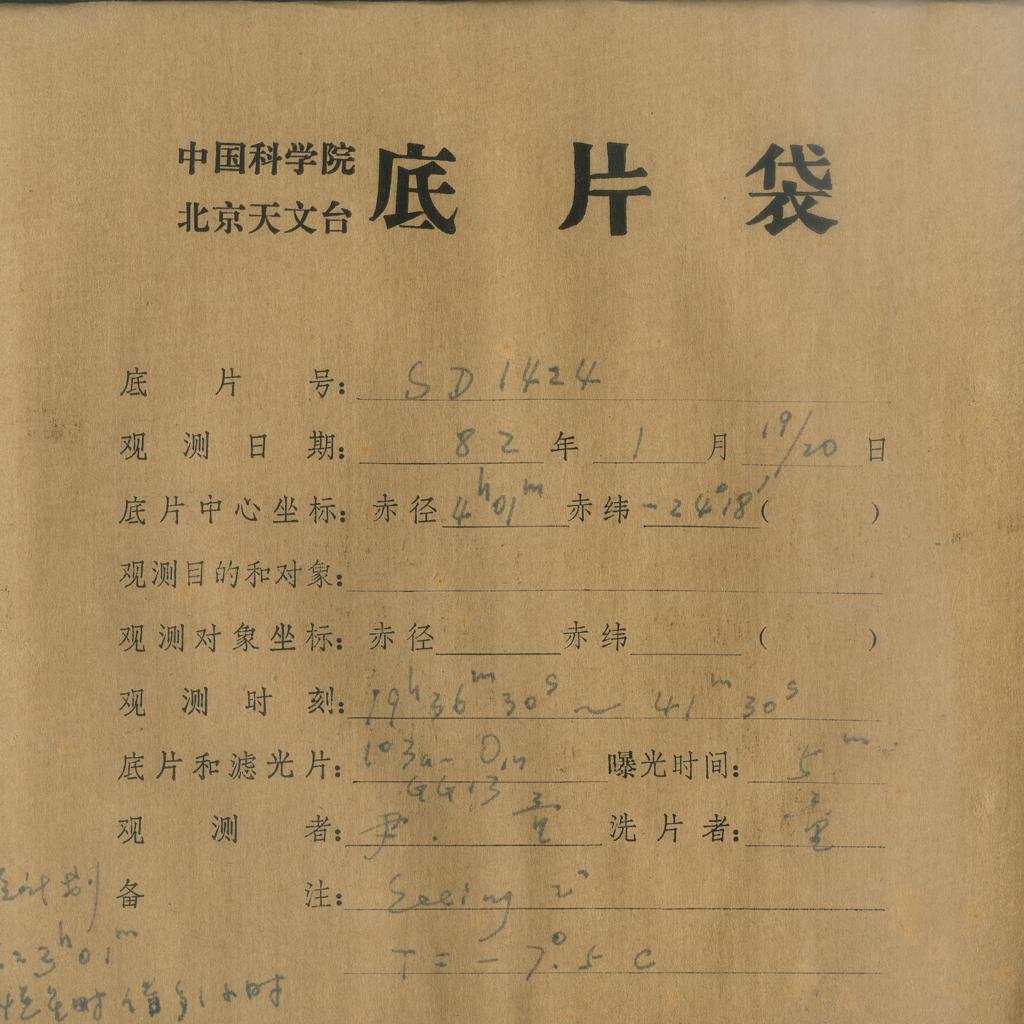 中国科学院
北京天文台
底片袋
底片号: SD 1424
观测日期: 82 年 1 月 19/20 日
底片中心坐标: 赤径 4h01m 赤纬 -24°18′ ( )
观测目的和对象:
观测对象坐标: 赤径 赤纬 ( )
观测时刻: 19h36m30s ~ 41m30s
底片和滤光片: 103a-O 曝光时间: 5m
GG13
观测者: 尹. 童 洗片者: 童
备注: Seeing 2"
T = -7°.5 C
计划
23h01m
恒星时 小时